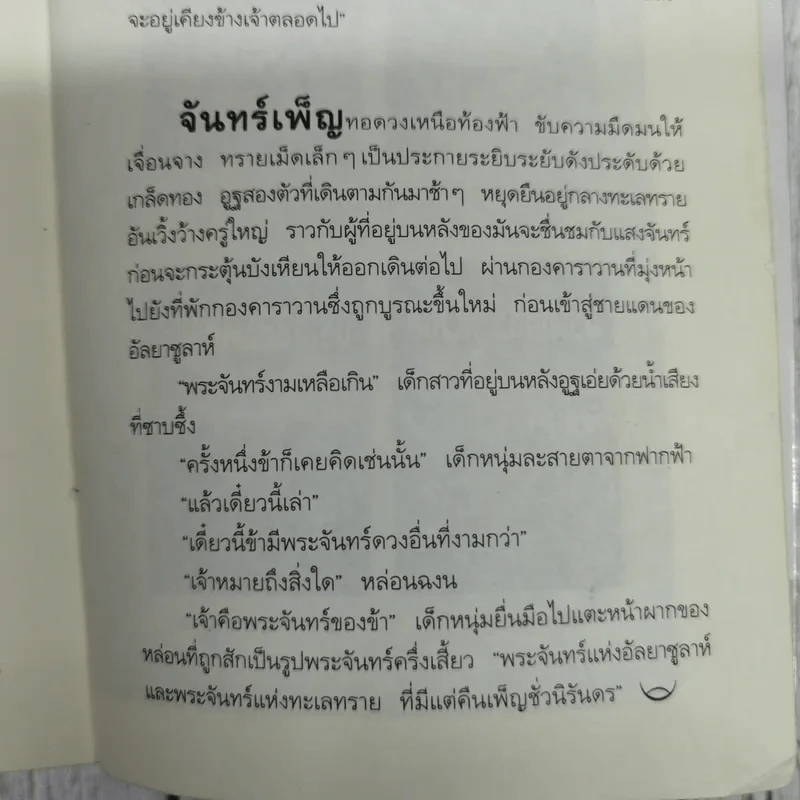 จะอยู่เคียงข้างเจ้าตลอดไป”
จันทร์เพ็ญทอดวงเหนือท้องฟ้า ขับความมืดมนให้
เจื่อนจาง ทรายเม็ดเล็กๆ เป็นประกายระยิบระยับดังประดับด้วย
เกล็ดทอง อูฐสองตัวที่เดินตามกันมาช้าๆ หยุดยืนอยู่กลางทะเลทราย
อันเวิ้งว้างครู่ใหญ่ ราวกับผู้ที่อยู่บนหลังของมันจะชื่นชมกับแสงจันทร์
ก่อนจะกระตุ้นบังเหียนให้ออกเดินต่อไป ผ่านกองคาราวานที่มุ่งหน้า
ไปยังที่พักกองคาราวานซึ่งถูกบูรณะขึ้นใหม่ ก่อนเข้าสู่ชายแดนของ
อัลยาซูลาห์
“พระจันทร์งามเหลือเกิน” เด็กสาวที่อยู่บนหลังอูฐเอ่ยด้วยน้ำเสียง
ที่ซาบซึ้ง
“ครั้งหนึ่งข้าก็เคยคิดเช่นนั้น” เด็กหนุ่มละสายตาจากฟากฟ้า
“แล้วเดี๋ยวนี้เล่า”
“เดี๋ยวนี้ข้ามีพระจันทร์ดวงอื่นที่งามกว่า”
“เจ้าหมายถึงสิ่งใด” หล่อนฉงน
“เจ้าคือพระจันทร์ของข้า” เด็กหนุ่มยื่นมือไปแตะหน้าผากของ
หล่อนที่ถูกสักเป็นรูปพระจันทร์ครึ่งเสี้ยว “พระจันทร์แห่งอัลยาซูลาห์
และพระจันทร์แห่งทะเลทราย ที่มีแต่คืนเพ็ญชั่วนิรันดร”